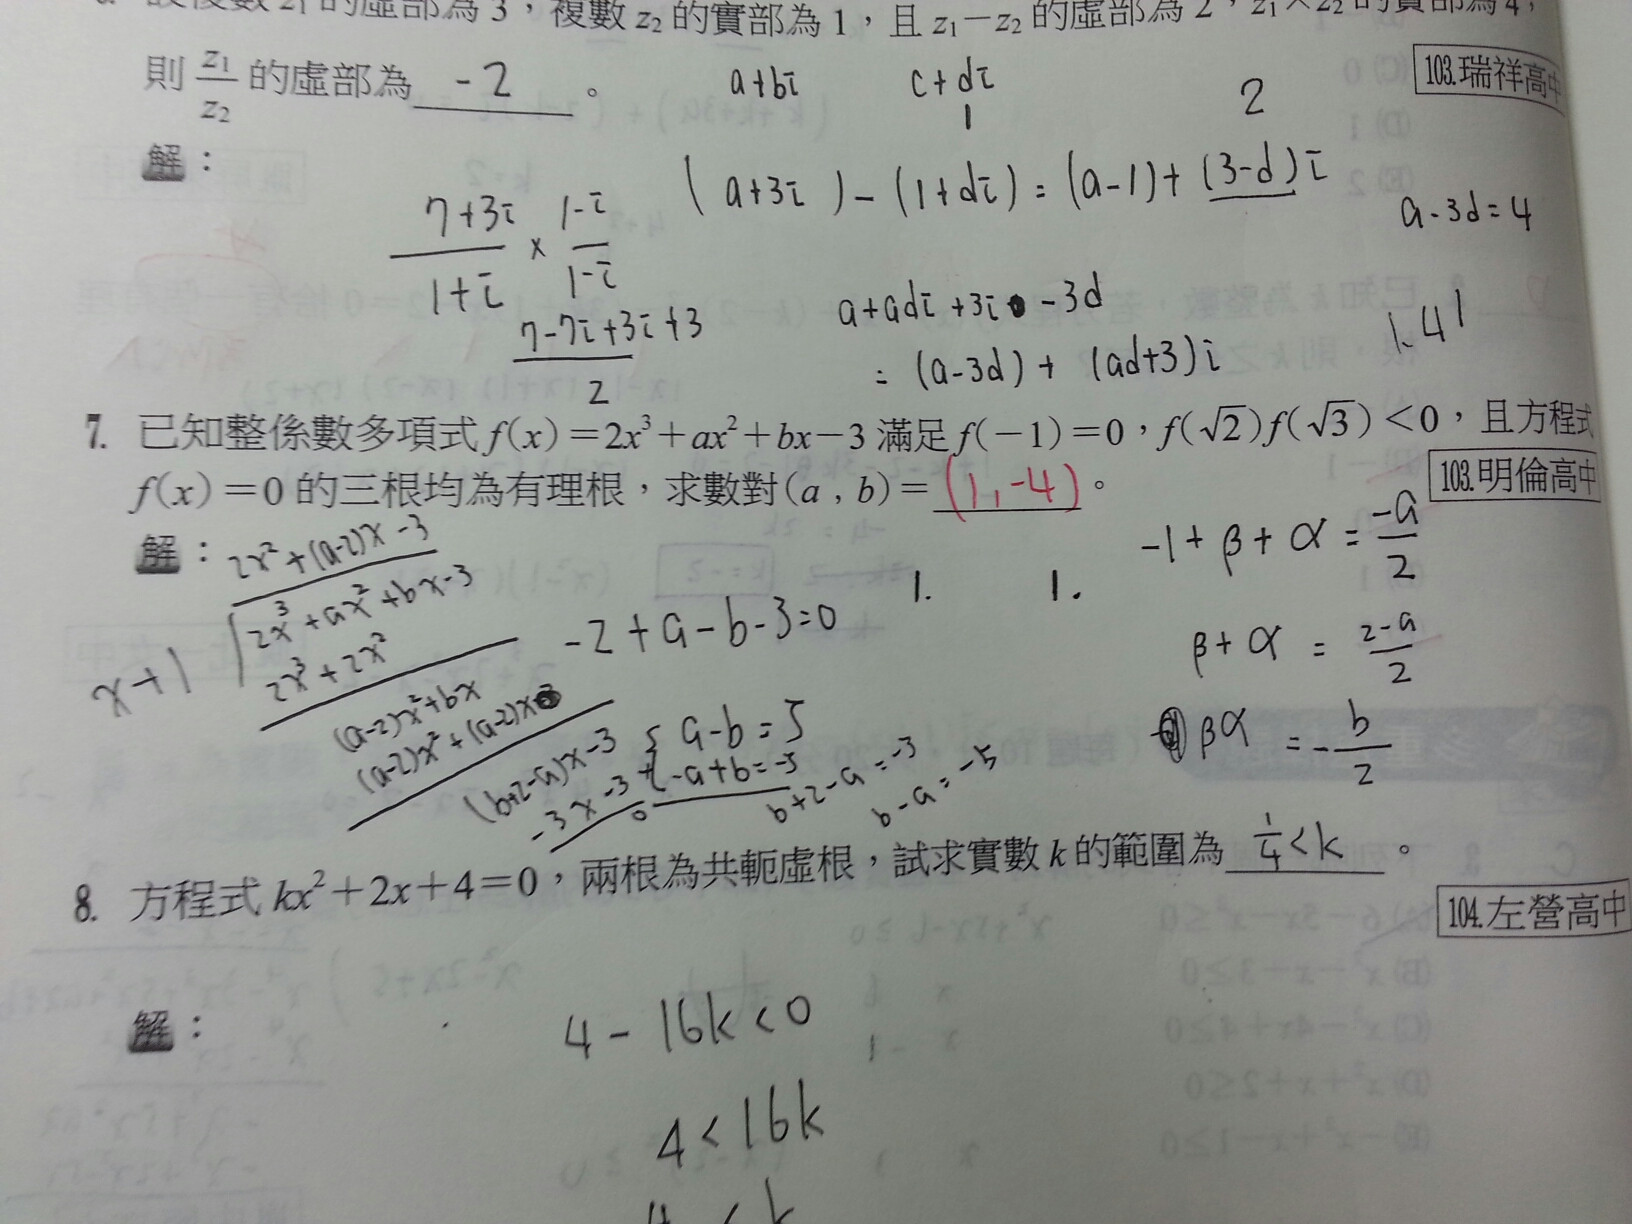 設複數 z₁ 的虛部為 3，複數 z₂ 的實部為 1，且 z₁－z₂ 的虛部為 2，z₁×z₂ 的實部為 4，
則 z₁/z₂ 的虛部為 -2 。
103.瑞祥高中
a+bi
c+di
1
2
解：
(a+3i)-(1+di)=(a-1)+(3-d)i
a-3d=4
7+3i/1+i × 1-i/1-i
7-7i+3i+3/2
a+adi+3i-3d
=(a-3d)+(ad+3)i
1.41
7. 已知整係數多項式 f(x)＝2x³＋ax²＋bx－3 滿足 f(－1)＝0，f(√2)f(√3)＜0，且方程式
f(x)＝0 的三根均為有理根，求數對(a , b)＝ (1,-4) 。
103.明倫高中
解：
2x²+(a-2)x-3
x+1
2x³+ax²+bx-3
2x³+2x²
(a-2)x²+bx
(a-2)x²+(a-2)x
(b+2-a)x-3
-3x-3
0
-2+a-b-3=0
a-b=5
+ -a+b=-5
b+2-a=-3
b-a=-5
1.
1.
-1+β+α=-a/2
β+α=2-a/2
βα=-b/2
8. 方程式 kx²＋2x＋4＝0，兩根為共軛虛根，試求實數 k 的範圍為 1/4<k 。
104.左營高中
解：
4-16k<0
4<16k